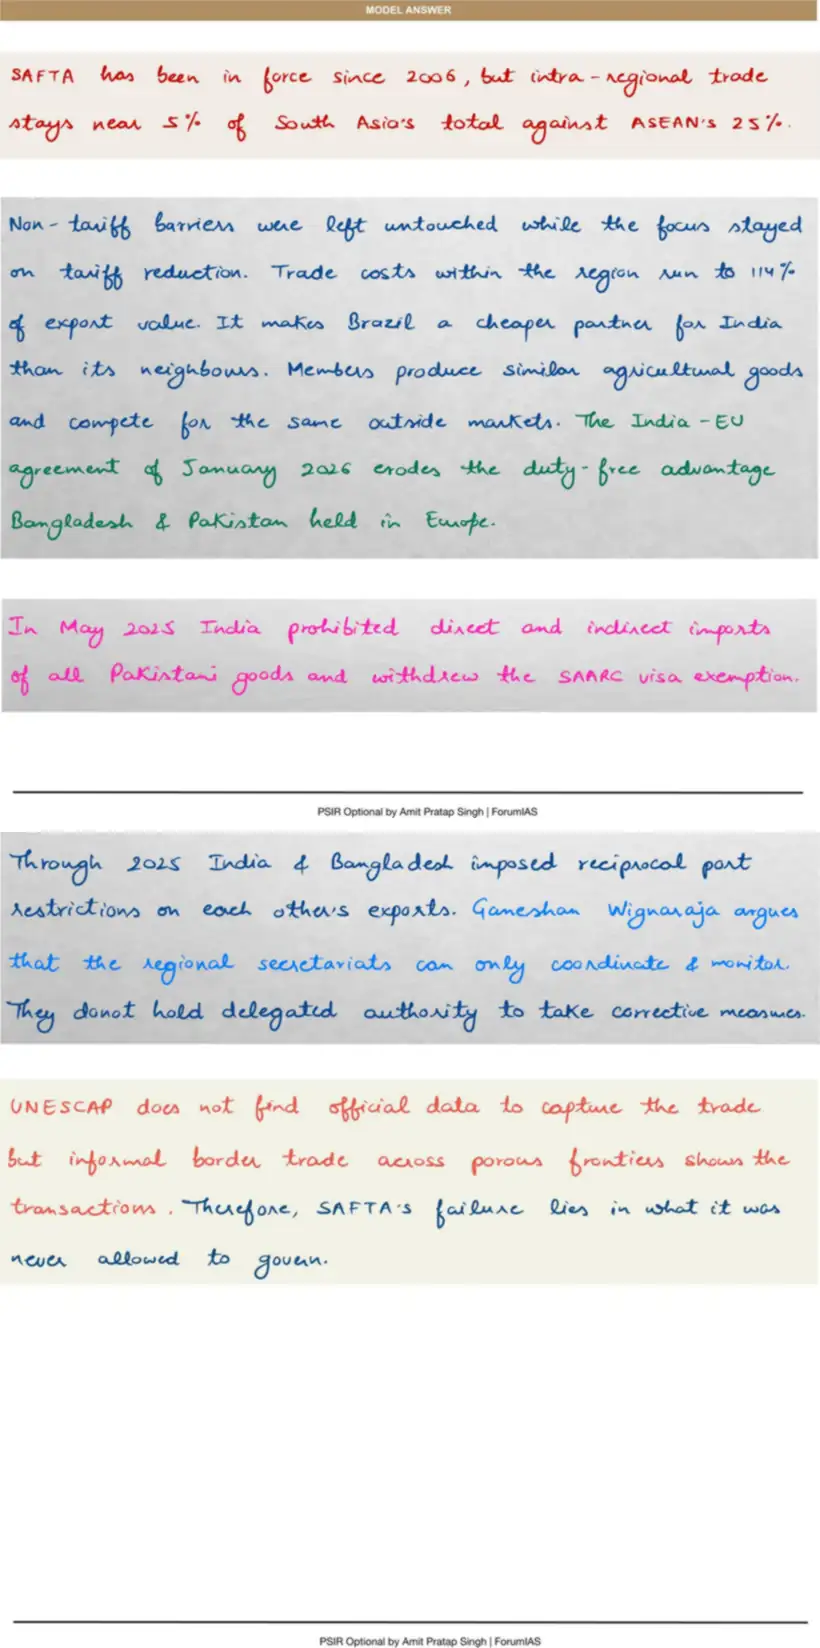 MODEL ANSWER
SAFTA has been in force since 2006, but intra-regional trade
stays near 5% of South Asia's total against ASEAN's 25%.
Non-tariff barriers were left untouched while the focus stayed
on tariff reduction. Trade costs within the region run to 114%
of export value. It makes Brazil a cheaper partner for India
than its neighbours. Members produce similar agricultural goods
and compete for the same outside markets. The India-EU
agreement of January 2026 erodes the duty-free advantage
Bangladesh & Pakistan held in Europe.
In May 2025 India prohibited direct and indirect imports
of all Pakistani goods and withdrew the SAARC visa exemption.
PSIR Optional by Amit Pratap Singh | ForumIAS
Through 2025 India & Bangladesh imposed reciprocal port
restrictions on each other's exports. Ganeshan Wignaraja argues
that the regional secretariats can only coordinate & monitor.
They donot hold delegated authority to take corrective measures.
UNESCAP does not find official data to capture the trade
but informal border trade across porous frontiers shows the
transactions. Therefore, SAFTA's failure lies in what it was
never allowed to govern.
PSIR Optional by Amit Pratap Singh | ForumIAS